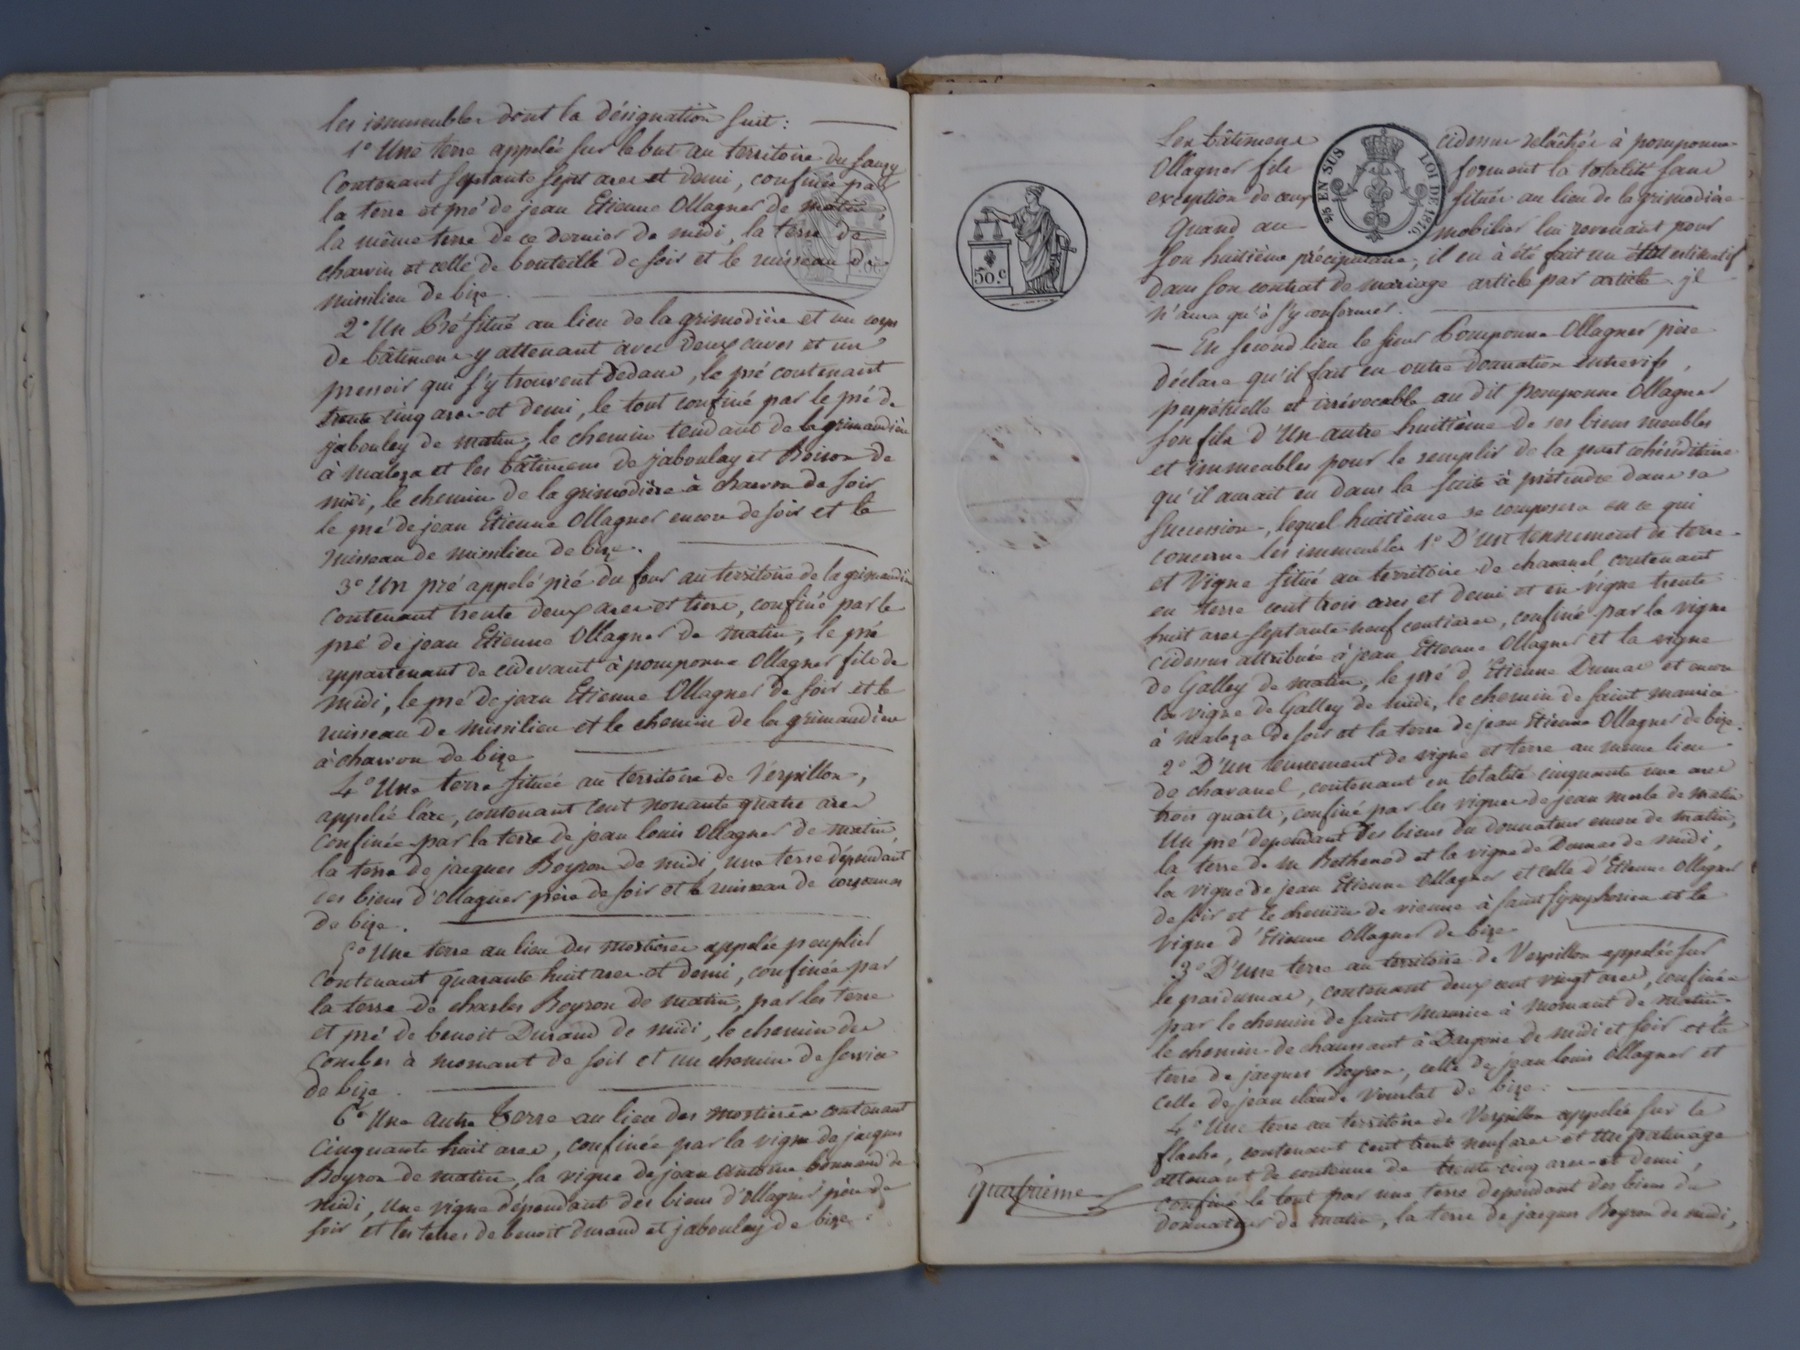 les immeubles dont la désignation suit :
1° Une terre appelée sur le but au territoire du
Contenant septante sept ares et demi, confinée par
la terre et pré de jean Etienne Ollagner de matin,
la même terre de ce dernier de midi, la terre de
charvin et celle de bouteille de soir et le ruisseau de
missilieu de bize.
2° Un Pré situé au lieu de la grimodière et un corps
de bâtimens y attenant avec deux cuves et un
pressoir qui s'y trouvent dedans, le pré contenant
trente cinq ares et demi, le tout confiné par le pré de
jabouley de matin, le chemin tendant de la grimaudière
à maleza et les bâtimens de jaboulay et Boiron de
midi, le chemin de la grimodière à charvon de soir
le pré de jean Etienne Ollagner encore de soir et le
ruisseau de missilieu de bize.
3° Un pré appelé pré du four au territoire de la grimaudière
contenant trente deux ares et tiers, confiné par le
pré de jean Etienne Ollagner de matin, le pré
appartenant de cidevant à pomponne Ollagner fils de
midi, le pré de jean Etienne Ollagner de soir et le
ruisseau de missilieu et le chemin de la grimaudière
à charvon de bize
4° Une terre située au territoire de Verpillon,
appelée l'are, contenant cent nonante quatre ares
Confinée par la terre de jean louis Ollagner de matin,
la terre de jacques Boyron de midi, une terre dépendant
des biens d'ollagner père de soir et le ruisseau de
de bize.
5° Une terre au lieu des mostieres appelée peuplier
Contenant quarante huit ares et demi, confinée par
la terre de charles Boyron de matin, par les terre
et pré de benoit Durand de midi, le chemin de
Combes à mornant de soir et un chemin de service
de bize.
6° Une autre terre au lieu des mostieres contenant
cinquante huit ares, confinée par la vigne de jacques
Boyron de matin, la vigne de jean antoine bonnand de
midi, Une vigne dépendant des biens d'ollagner père de
soir et les terres de benoit durand et jabouley de bize.
50.c
¾ EN SUS LOI DE 1816.
Les bâtimens cidessus relâchés à pomponne
Ollagner fils forment la totalité sans
exception de ceux situés au lieu de la grimodière
Quand au mobilier lui revenant pour
son huitième précipuaire, il en a été fait un état estimatif
dans son contrat de mariage article par article. il
n'aura qu'à s'y conformer.
— En second lieu le sieur Pomponne Ollagner père
déclare qu'il fait en outre donnation entrevifs,
perpétuelle et irrévocable au dit Pomponne Ollagner
son fils d'Un autre huitième de ses biens meubles
et immeubles pour le remplir de la part cohéréditaire
qu'il aurait eu dans la suite à prétendre dans sa
succession, lequel huitième se composera en ce qui
concerne les immeubles 1° D'un tennement de terre
et Vigne situé au territoire de chavanel contenant
en terre cent trois ares et demi et en vigne trente
huit ares septante neuf centiares, confiné par la vigne
cidessus attribuée à jean Etienne Ollagner et la vigne
de Galley de matin, le pré d'Etienne Dumas et encore
la vigne de Galley de midi, le chemin de saint maurice
à maleza de soir et la terre de jean Etienne Ollagner de bize.
2° D'un tennement de vigne et terre au meme lieu
de chavanel, contenant en totalité cinquante une ares
trois quarts, confiné par les vignes de jean merle de matin
Un pré dépendant des biens du donnateur encore de matin,
la terre de m Bethenod et la vigne de Dumas de midi,
la vigne de jean Etienne Ollagner et celle d'Etienne Ollagner
de soir et le chemin de vienne à saint symphorien et la
vigne d'Etienne Ollagner de bize
3° D'une terre au territoire de Verpillon appelée sur
le pasdumas, contenant deux cent vingt ares, confinée
par le chemin de saint maurice à mornant de matin
le chemin de chaussant à Dargoire de midi et soir et la
terre de jacques Boyron, celle de jean louis Ollagner et
celle de jean claude Vourlat de bize.
4° Une terre au territoire de Verpillon appelée sur la
flache, contenant cent trente neuf ares et un paturage
attenant de contenue de trente cinq ares et demi,
confiné le tout par une terre dependant des biens du
donnateur de matin, la terre de jacques Boyron de midi,
quatrième